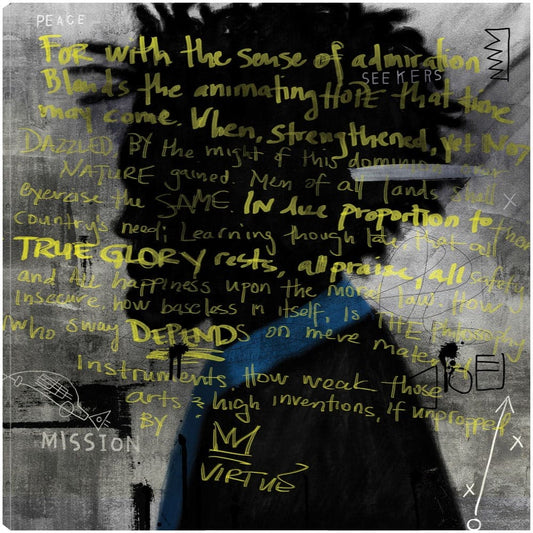 PEACE
For with the sense of admiration
SEEKERS
Blends the animating HOPE that time
may come. When, strengthened, yet NOT
DAZZLED BY the might of this dominion over
NATURE gained, Men of all lands shall
exercise the SAME. IN due proportion to their
country's need; Learning though late that all
TRUE GLORY rests, all praise, all safety
and all happiness upon the moral law. How
insecure, how baseless in itself, Is THE Philosophy
who sway DEPENDS on mere material
Instruments. How weak those
arts & high inventions, if unpropped
BY
MISSION
VIRTUE